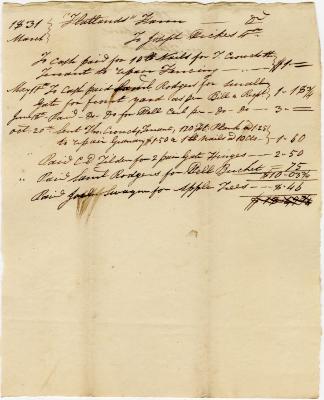 1831 "Flatlands" Farm Dr
March To Joseph
To Cash paid for 10 lb Nails for T
Tenant to repair Fencing $1 =
May 18th To Cash paid Saml Rodgers for small
Gate for front yard as per Bill & Rept 1-18¾
Paid do do for Well Curb pr do do 3-=
Oct. 20th Sent Thos Tenant, 120 ft Plank @ 1.25
to repair Granary $1.50 & 1 lb nails 10 Cts 1-60
" Paid C.D Tilden for 2 pair Gate Hinges - 2-50
" Paid Saml Rodgers for Well Bucket 75
$10-03¾
Paid Swayn for Apple Trees - 8-46